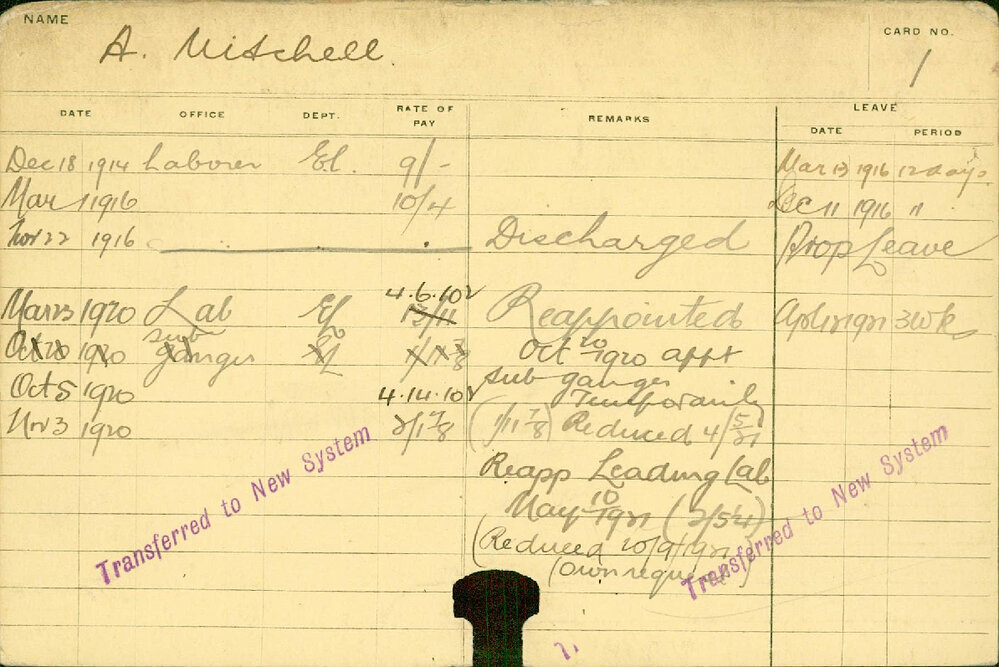 NAME
A. Mitchell.
CARD NO.
1
DATE OFFICE DEPT. RATE OF PAY REMARKS LEAVE
DATE PERIOD
Dec 18 1914 Laborer El. 9/- Mar 13 1916 12 days
Mar 1 1916 10/4 Oc 11 1916 "
Nov 22 1916 Discharged Prop Leave
4.6.10½
Mar 23 1920 Lab El 13/11 Reappointed 3 wks
Sub
Oct 20 1920 ganger El Oct 20 1920 appt
Oct 5 1920 4.14.10½ sub ganger
Temporarily
Nov 3 1920 2/1 7/8 (1/11 7/8) Reduced 4/5/21
Reapp Leading Lab
May 10 1921 (2/5¼)
(Reduced 20/9/1921
(own request)
Transferred to New System
Transferred to New System